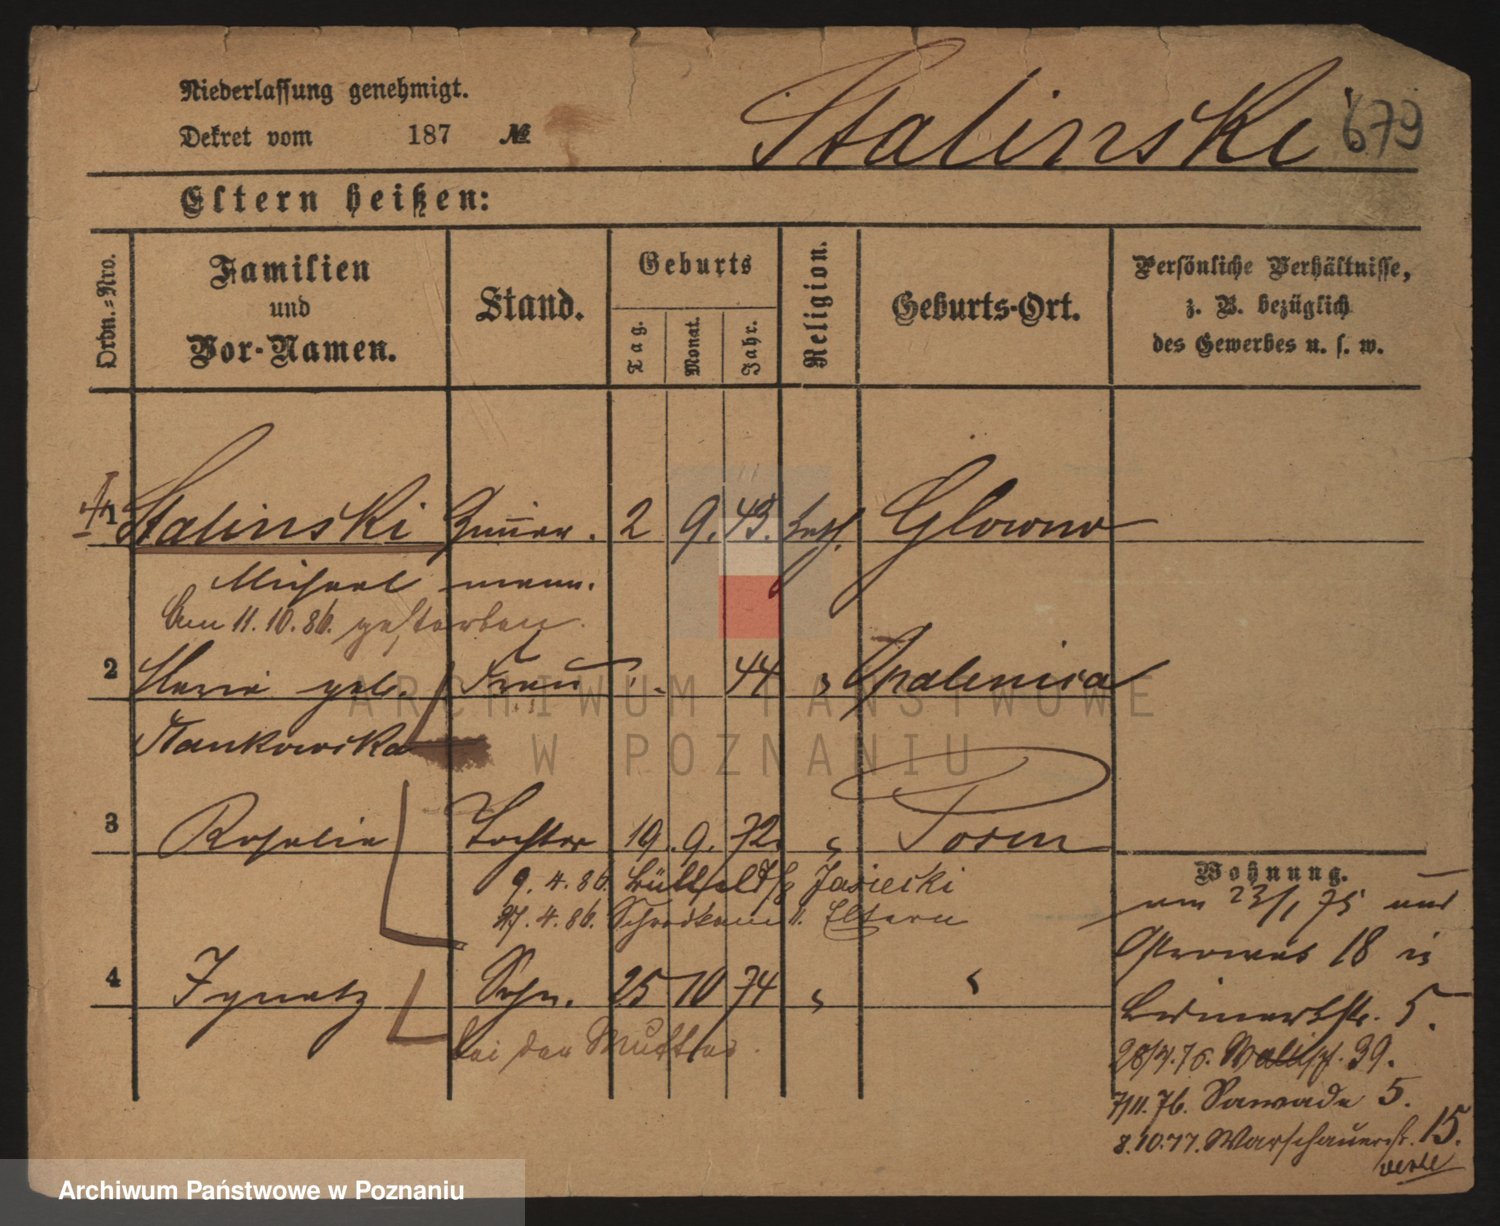 Niederlassung genehmigt.
Stalinski 679
Dekret vom 187 №
Eltern heißen:
Ordn.-Nro.
Familien und Vor-Namen.
Stand.
Geburts
Tag.
Monat.
Jahr.
Religion.
Geburts-Ort.
Persönliche Verhältnisse,
z. B. bezüglich
des Gewerbes u. s. w.
1 Stalinski 2 9. 43. kath. Glowno
Michael
Am 11.10.86. gestorben.
2 Marie geb. Frau 44 " Opalenica
Stankowska
3 Rosalie Tochter 19. 9. 72. " Posen
9. 4. 86. Jasiecki
4. 86. Eltern
4 Ignatz Sohn. 25 10 74 " "
bei der Mutter.
Wohnung.
23/1 75
Ostrowek 18 in
5.
28/4. 76. Wallisch. 39.
7/11. 76. Zawade 5.
8.10.77. Warschauerstr. 15.
ARCHIWUM PAŃSTWOWE
W POZNANIU
Archiwum Państwowe w Poznaniu